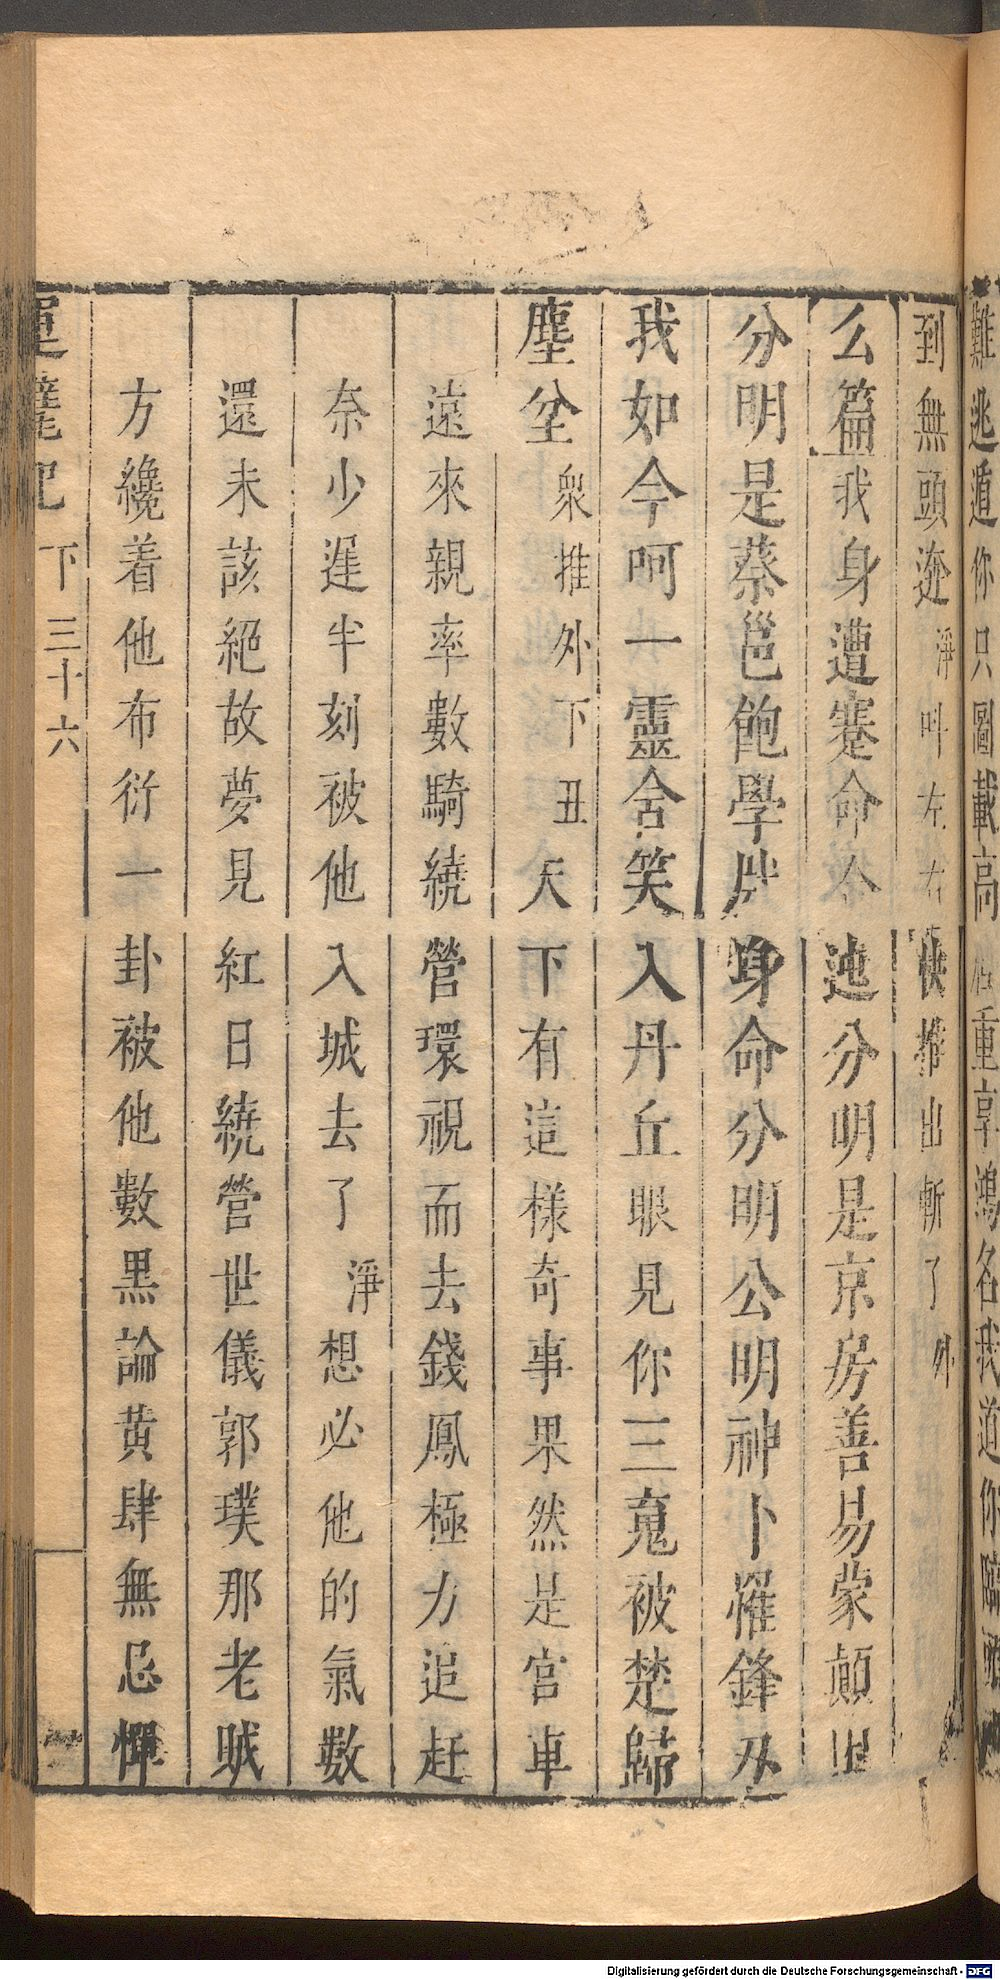 難逃遁你只圖載高位重享鴻名我道你臨
到無頭遊淨叫左右快推出斬了外
么篇我身遭蹇命今迍分明是京房善易蒙顛
分明是蔡邕飽學 身命分明公明神卜罹鋒刃
我如今呵一靈含笑入丹丘眼見你三䰟被楚歸
塵坌衆推外下丑天下有這樣奇事果然是宫車
遠來親率數騎繞營環視而去錢鳳極力追赶
奈少遲半刻被他入城去了淨想必他的氣數
還未該絕故夢見紅日繞營世儀郭璞那老賊
方纔着他布衍一卦被他數黑論黄肆無忌憚
運甓記 下 三十六
Digitalisierung gefördert durch die Deutsche Forschungsgemeinschaft - DFG